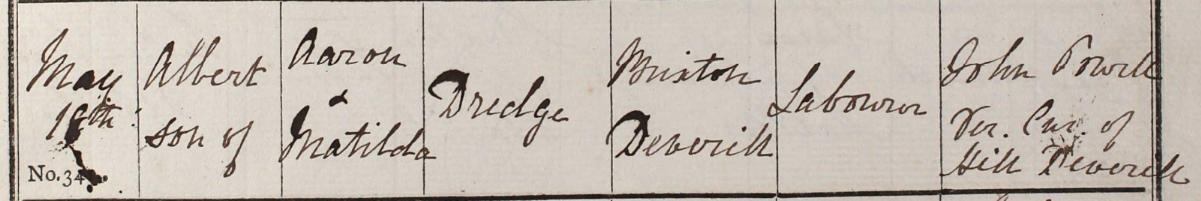 May
18th
No. 34
Albert
son of
Aaron
&
Matilda
Dredge
Brixton
Deverill
Labourer
John Powell
Per. Cur. of
Hill Deverill